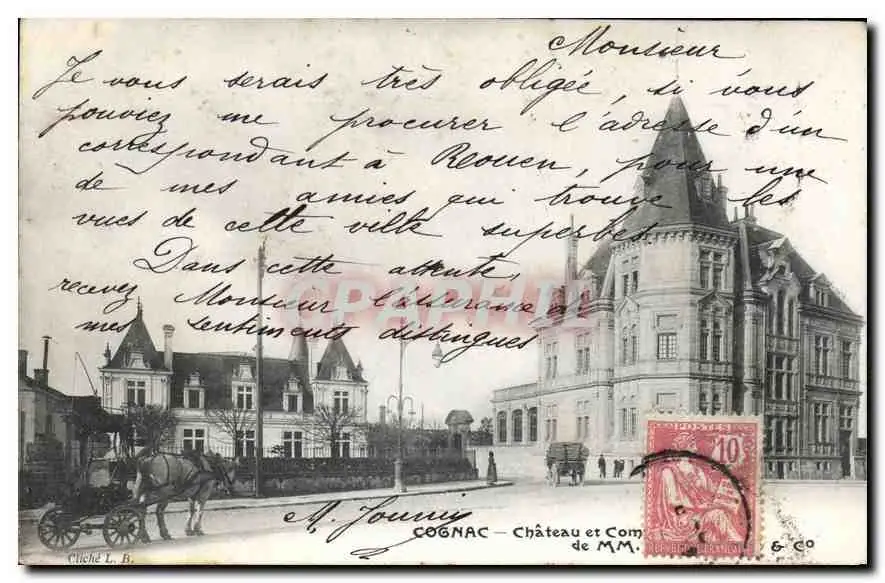 Monsieur
Je vous serais très obligée, si vous
pouviez me procurer l'adresse d'un
correspondant à Rouen, pour une
de mes amies qui trouve les
vues de cette ville superbes.
Dans cette attente,
recevez Monsieur l'assurance de
mes sentiments distingués
CPARAMA
POSTES
10
FRANÇAISE
COGNAC - Château et Com
de MM. & Co
Cliché L. B.